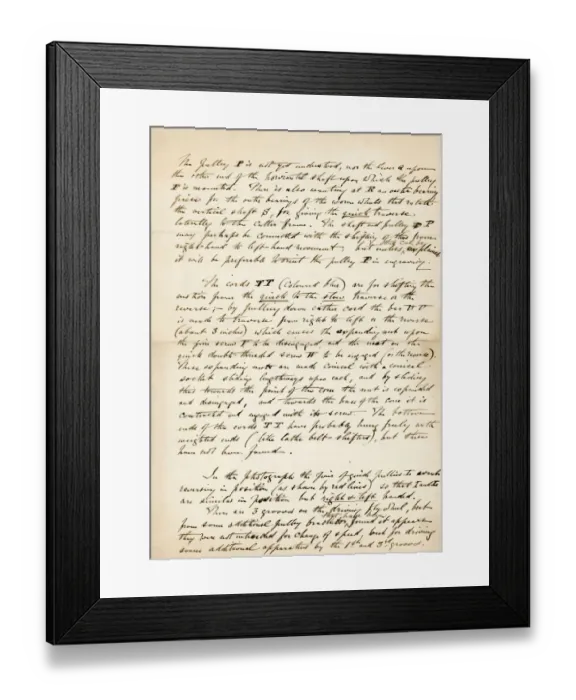 The Pulley P is not yet understood, nor the lever a upon
the other end of the horizontal shaft upon which the pulley
P is mounted. There is also wanting at R an outer bearing
piece for the outer bearings of the worm wheels that rotate
the vertical shaft S, for giving the quick traverse
laterally to the cutter frame. The shaft and pulley P
may perhaps be connected with the shifting of the frame
right-hand to left-hand movement; but unless explained
it will be preferable to omit the pulley P in engraving.
The cords TT (coloured blue) are for shifting the
motion from the quick to the slow traverse or the
reverse; by pulling down either cord the bar U U
is made to traverse from right to left or the reverse
(about 3 inches) which causes the expanding nut upon
the fine screw V to be disengaged and the nut on the
quick double thread screw W to be engaged (or the reverse).
These expanding nuts are made conical with a conical
socket sliding lengthways upon each, and by sliding
this towards the point of the cone the nut is expanded
and disengaged, and towards the base of the cone it is
contracted and engaged with its screw. The bottom
ends of the cords TT have probably hung freely with
weighted ends (like lathe belt-shifters), but these
have not been found.
In the photograph the pair of guide pullies to
reversing in position (as shown by red lines) so that
are similar in position but right & left handed.
There are 3 grooves on the driving fly wheel, but
from some additional pulley brackets found it appears
they were not intended for change of speed, but for driving
some additional apparatus by the 1st and 3rd grooves.